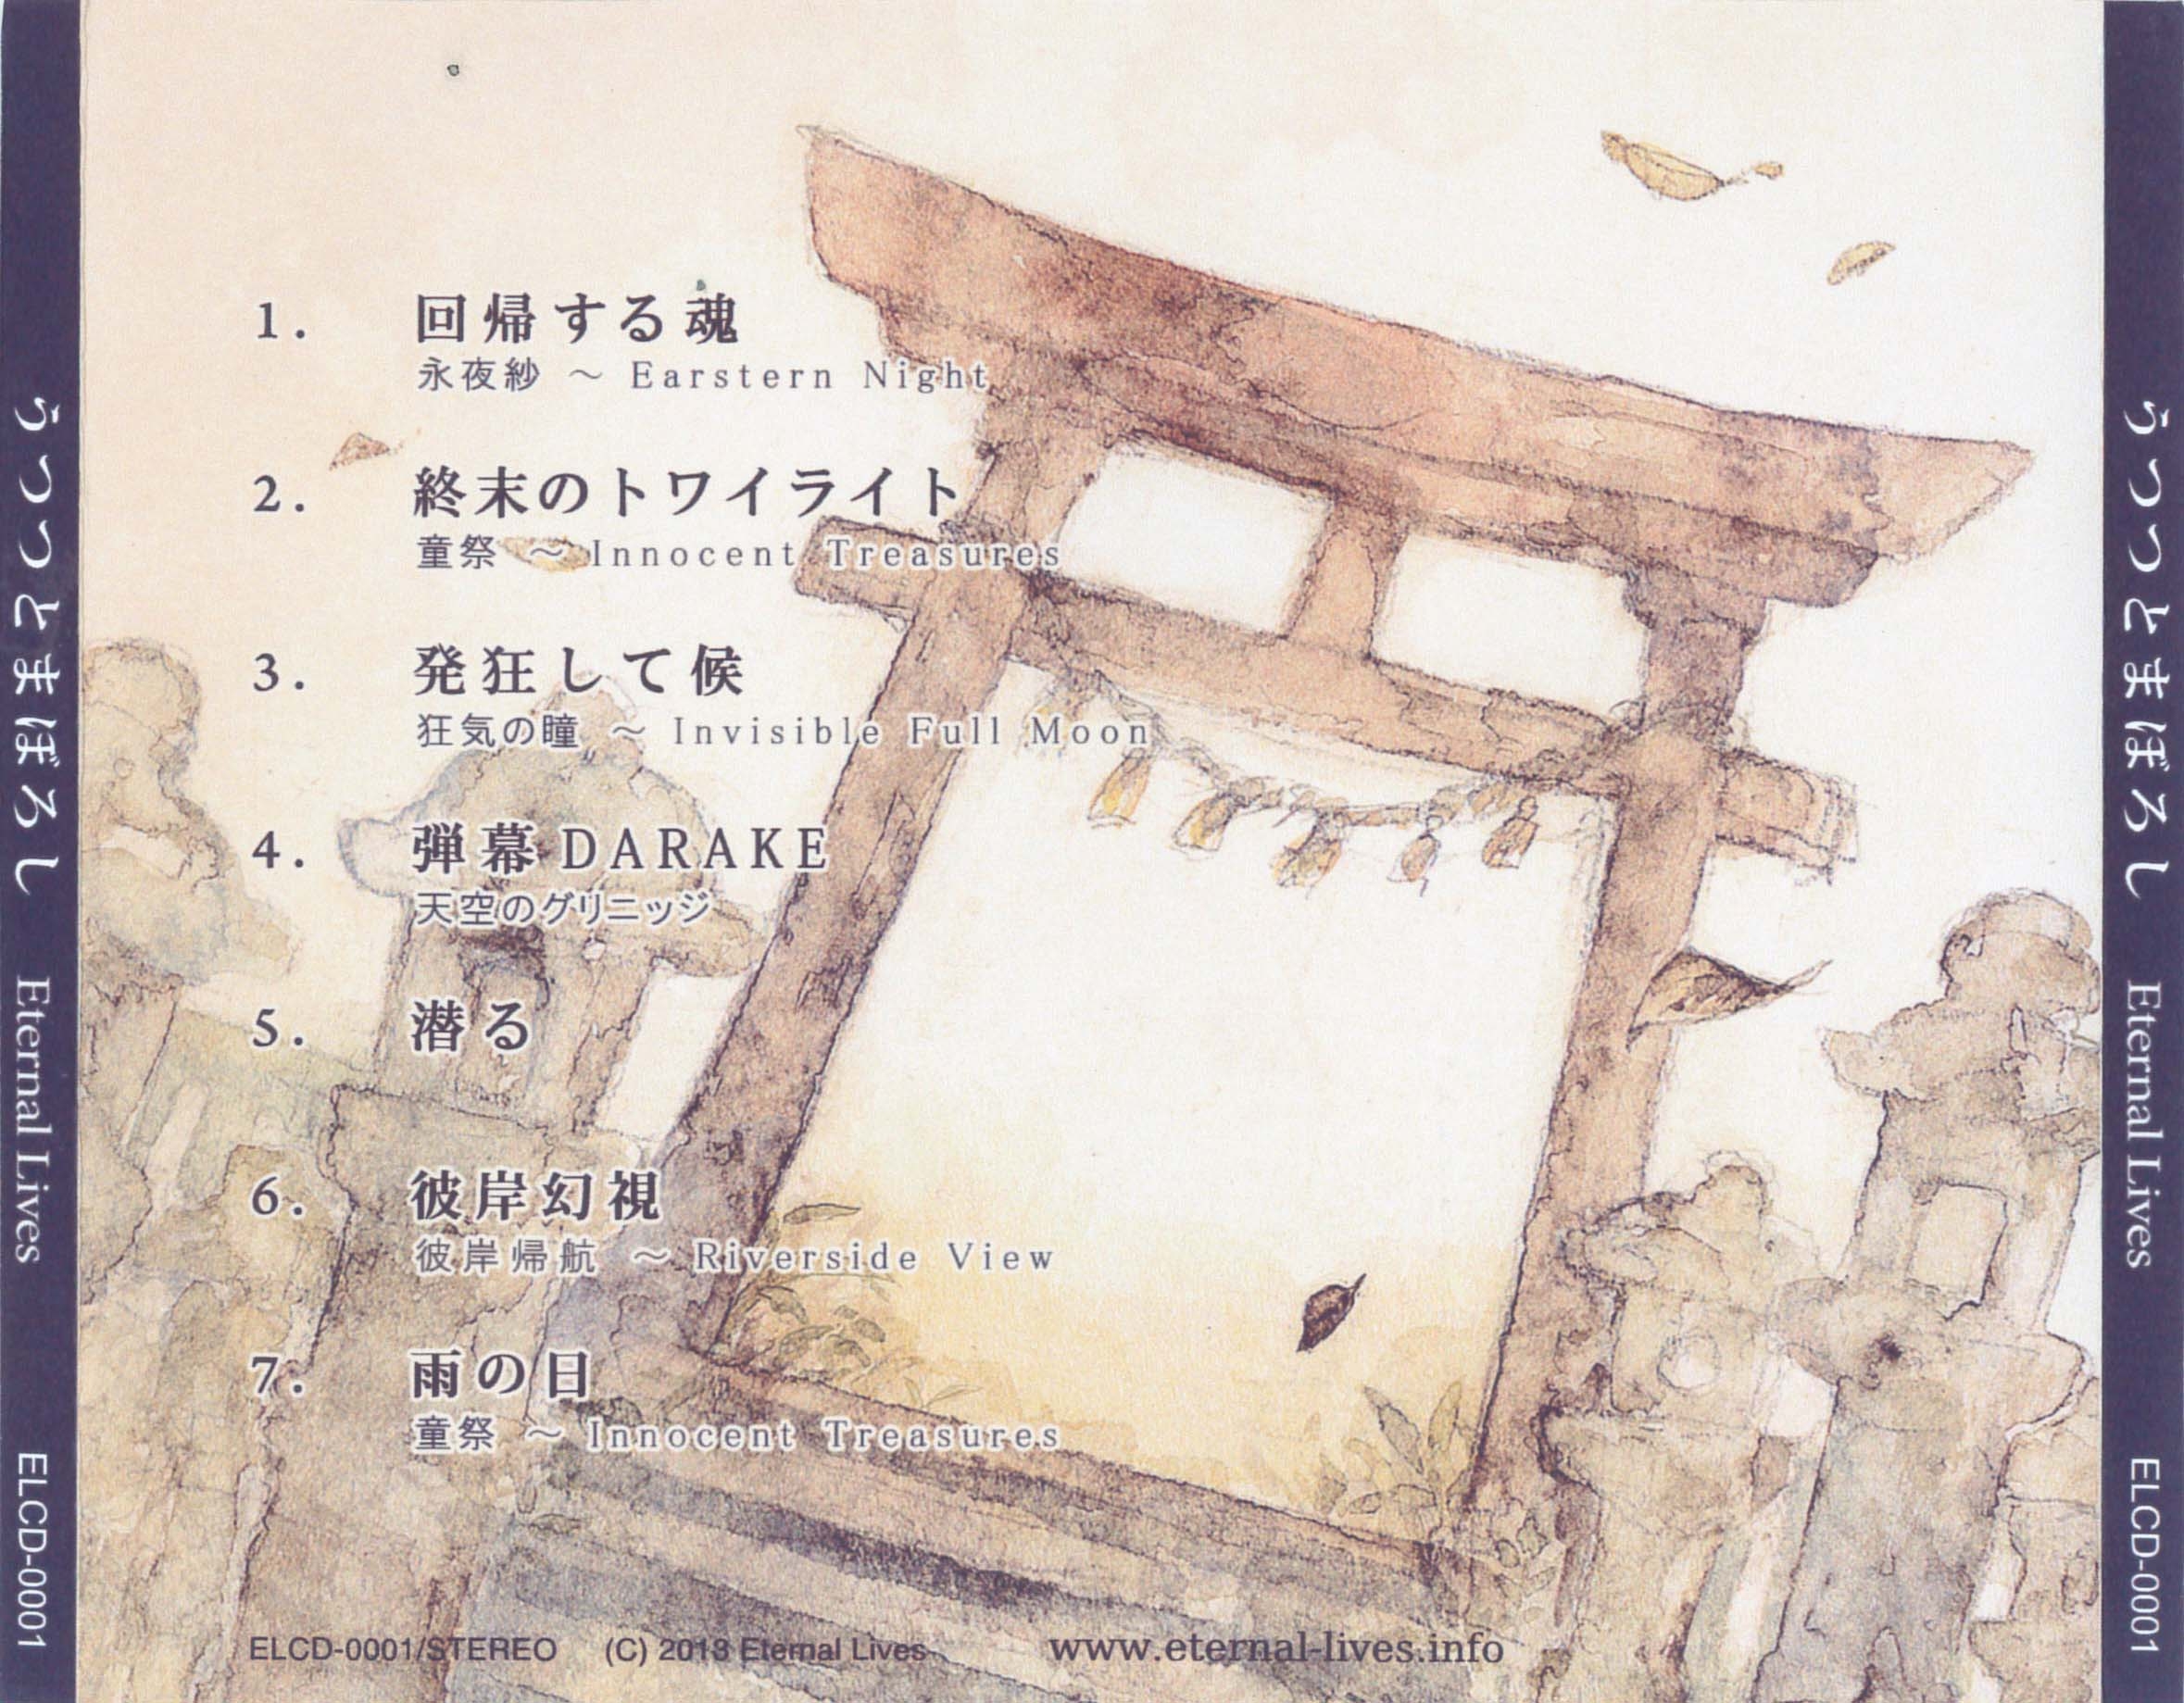 1. 回帰する魂
永夜紗 ～ Earstern Night
2. 終末のトワイライト
童祭 ～ Innocent Treasures
3. 発狂して候
狂気の瞳 ～ Invisible Full Moon
4. 弾幕DARAKE
天空のグリニッジ
5. 潜る
6. 彼岸幻視
彼岸帰航 ～ Riverside View
7. 雨の日
童祭 ～ Innocent Treasures
ELCD-0001/STEREO (C) 2013 Eternal Lives www.eternal-lives.info
うつつとまぼろし Eternal Lives ELCD-0001
うつつとまぼろし Eternal Lives ELCD-0001